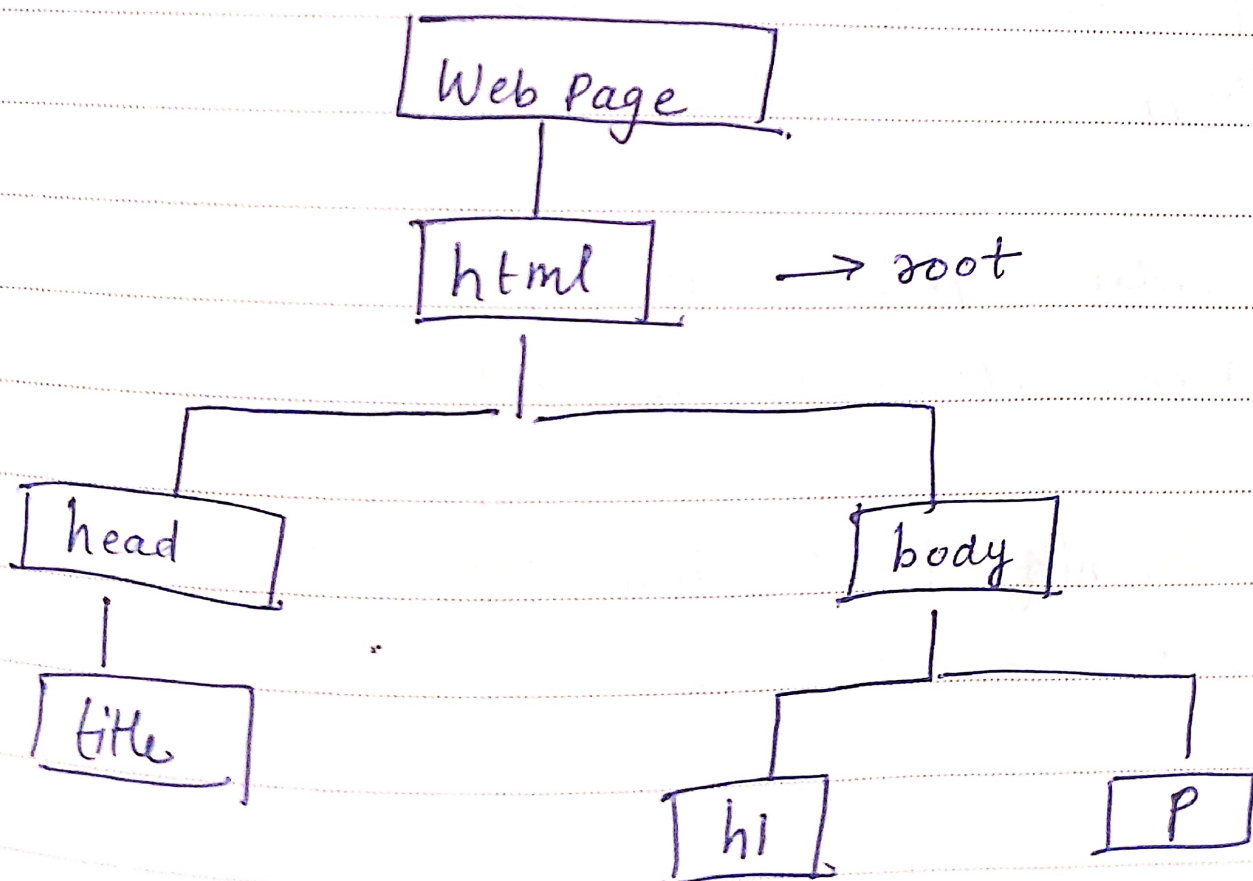 Web Page
html → root
head body
title
h1 P